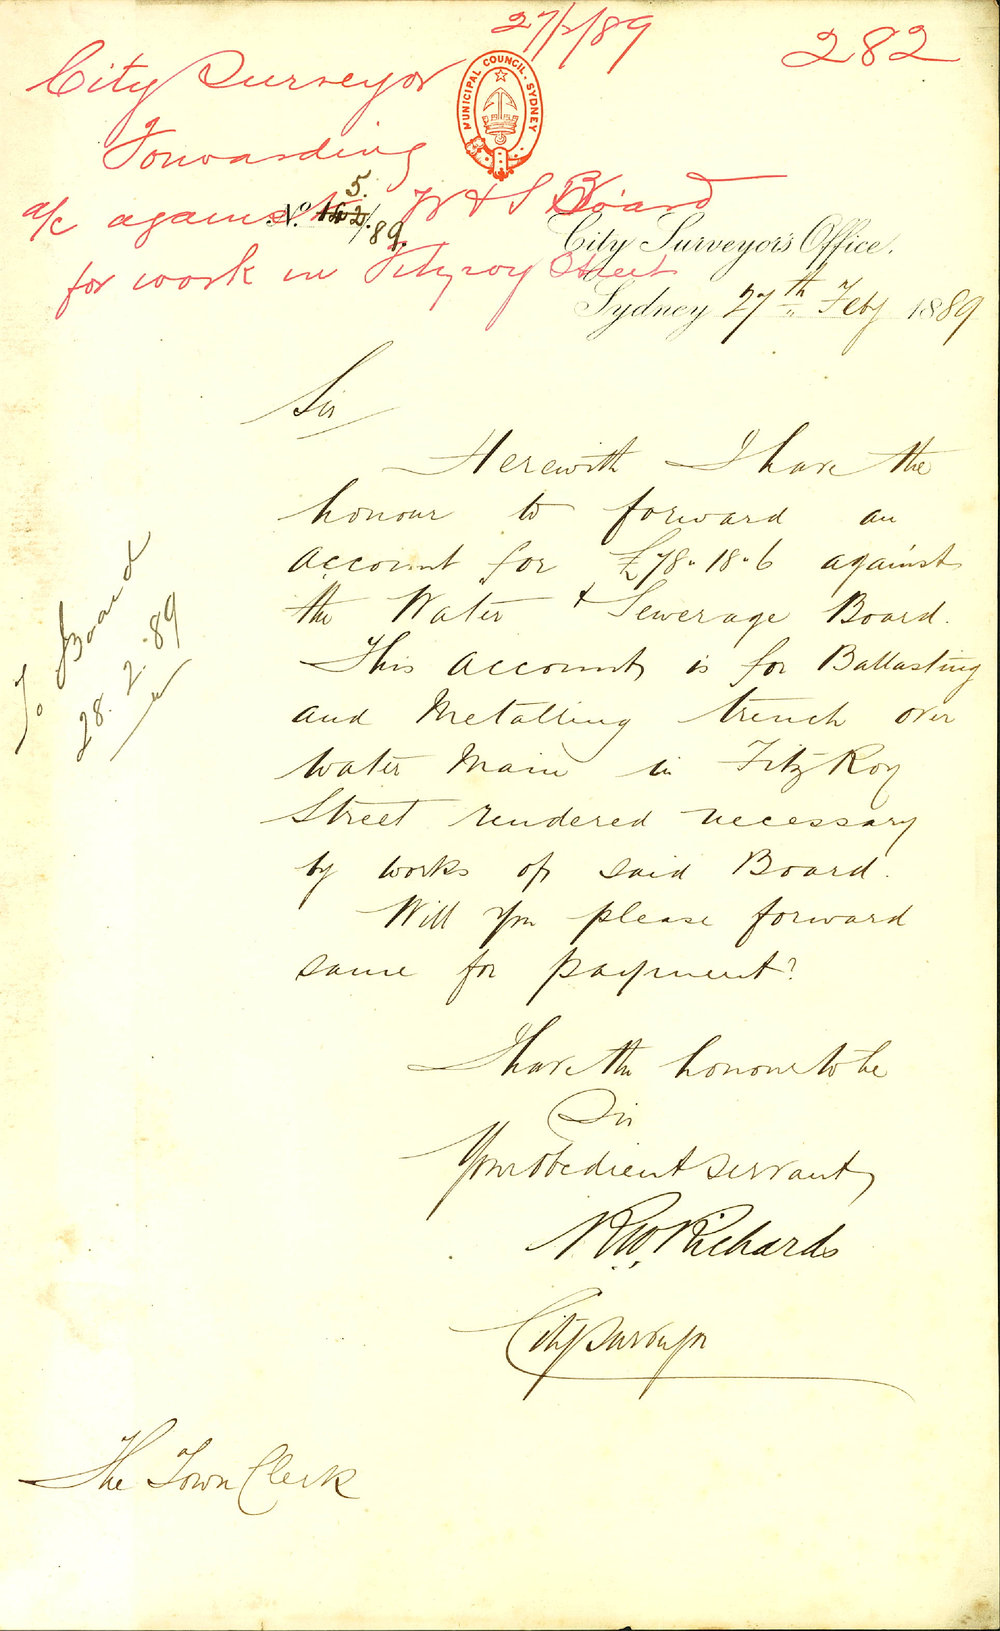 27/2/89
282
City Surveyor
MUNICIPAL COUNCIL. SYDNEY
Forwarding
a/c against W & S Board
No. 142/89.
5.
City Surveyor's Office.
for work in Fitzroy Street
Sydney 27th Feby 1889
Sir
Herewith I have the
honour to forward an
account for £78.18.6 against
the Water & Sewerage Board.
This account is for Ballasting
and Metalling trench over
water Main in FitzRoy
Street rendered necessary
by works of said Board.
Will you please forward
same for payment?
I have the honour to be
Sir
Your obedient servant
R W Richards
City Surveyor
The Town Clerk
To Board
28.2.89